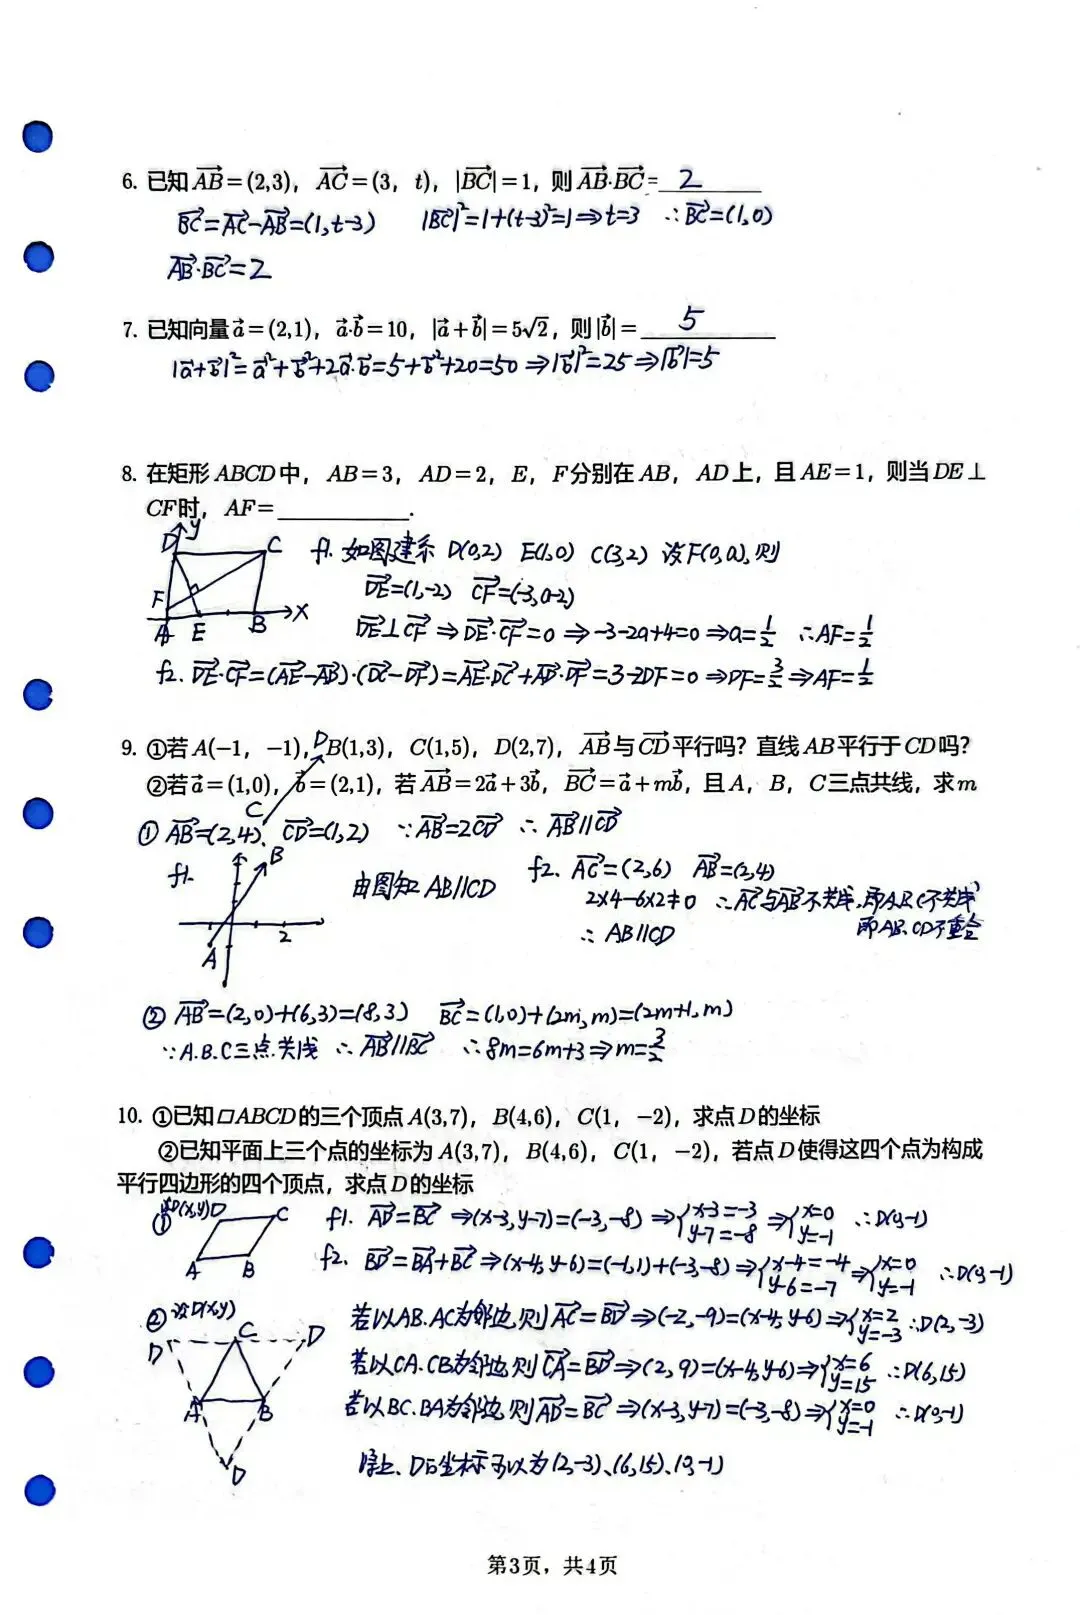 6. 已知 AB = (2,3), AC = (3, t), |BC| = 1, 则 AB·BC = 2
BC=AC-AB=(1,t-3) |BC|²=1+(t-3)²=1⇒t=3 ∴BC=(1,0)
AB·BC=2
7. 已知向量 a = (2,1), a·b = 10, |a + b| = 5√2, 则 |b| = 5
|a+b|²=a²+b²+2a·b=5+b²+20=50⇒|b|²=25⇒|b|=5
8. 在矩形 ABCD 中, AB = 3, AD = 2, E, F 分别在 AB, AD 上, 且 AE = 1, 则当 DE ⊥
CF 时, AF = ________.
y D C F A E B x
f1. 如图建系 D(0,2) E(1,0) C(3,2) 设F(0,a), 则
DE=(1,-2) CF=(-3,a-2)
DE⊥CF⇒DE·CF=0⇒-3-2a+4=0⇒a=1/2 ∴AF=1/2
f2. DE·CF=(AE-AD)·(DC-DF)=AE·DC+AD·DF=3-2DF=0⇒DF=3/2⇒AF=1/2
9. ①若 A(−1, −1), B(1,3), C(1,5), D(2,7), AB 与 CD 平行吗? 直线 AB 平行于 CD 吗?
②若 a = (1,0), b = (2,1), 若 AB = 2a + 3b, BC = a + mb, 且 A, B, C 三点共线, 求 m
① AB=(2,4) CD=(1,2) ∵AB=2CD ∴AB//CD
f1. A B C D 2
由图知 AB//CD
f2. AC=(2,6) AB=(2,4)
2×4-6×2≠0 ∴AC与AB不共线, 即A.B.C不共线
即AB、CD不重合
∴AB//CD
② AB=(2,0)+(6,3)=(8,3) BC=(1,0)+(2m,m)=(2m+1,m)
∵A.B.C三点共线 ∴AB//BC ∴8m=6m+3⇒m=3/2
10. ①已知▱ABCD 的三个顶点 A(3,7), B(4,6), C(1, −2), 求点 D 的坐标
②已知平面上三个点的坐标为 A(3,7), B(4,6), C(1, −2), 若点 D 使得这四个点为构成
平行四边形的四个顶点, 求点 D 的坐标
① 设D(x,y) D C A B
f1. AD=BC⇒(x-3,y-7)=(-3,-8)⇒{x-3=-3 y-7=-8⇒{x=0 y=-1 ∴D(0,-1)
f2. BD=BA+BC⇒(x-4,y-6)=(-1,1)+(-3,-8)⇒{x-4=-4 y-6=-7⇒{x=0 y=-1 ∴D(0,-1)
② 设D(x,y) D C D A B D
若以AB.AC为邻边, 则AC=BD⇒(-2,-9)=(x-4,y-6)⇒{x=2 y=-3 ∴D(2,-3)
若以CA.CB为邻边, 则CA=BD⇒(2,9)=(x-4,y-6)⇒{x=6 y=15 ∴D(6,15)
若以BC.BA为邻边, 则AD=BC⇒(x-3,y-7)=(-3,-8)⇒{x=0 y=-1 ∴D(0,-1)
综上、D的坐标可以为(2,-3)、(6,15)、(0,-1)
第3页, 共4页